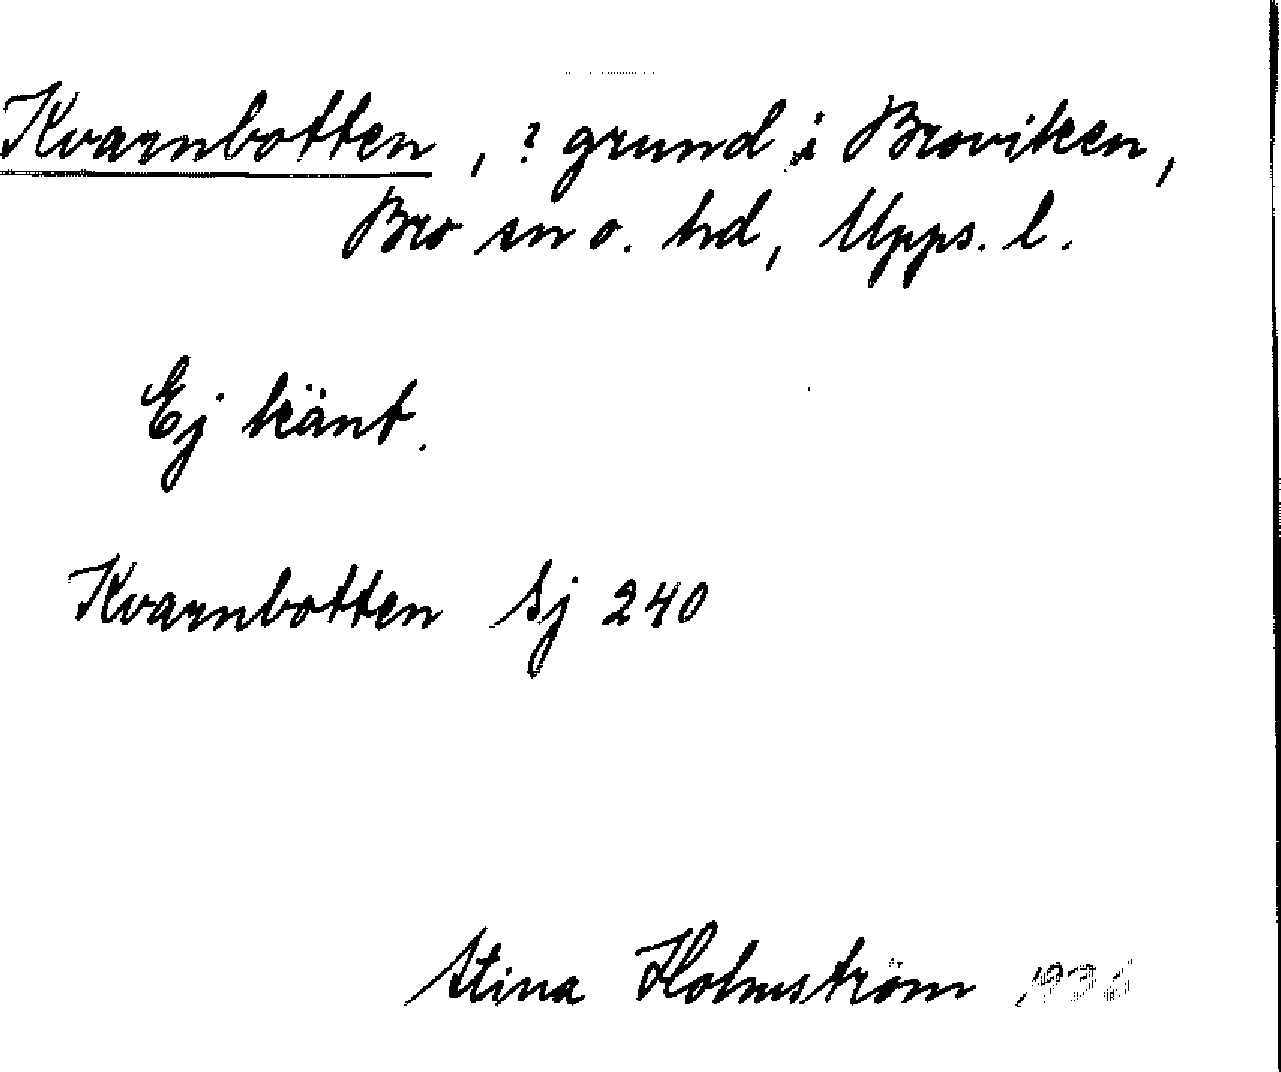 Kvarnbotten, ? grund i Broviken,
Bro sn o. hd, Upps. l.
Ej känt.
Kvarnbotten Sj 240
Stina Holmström 1936